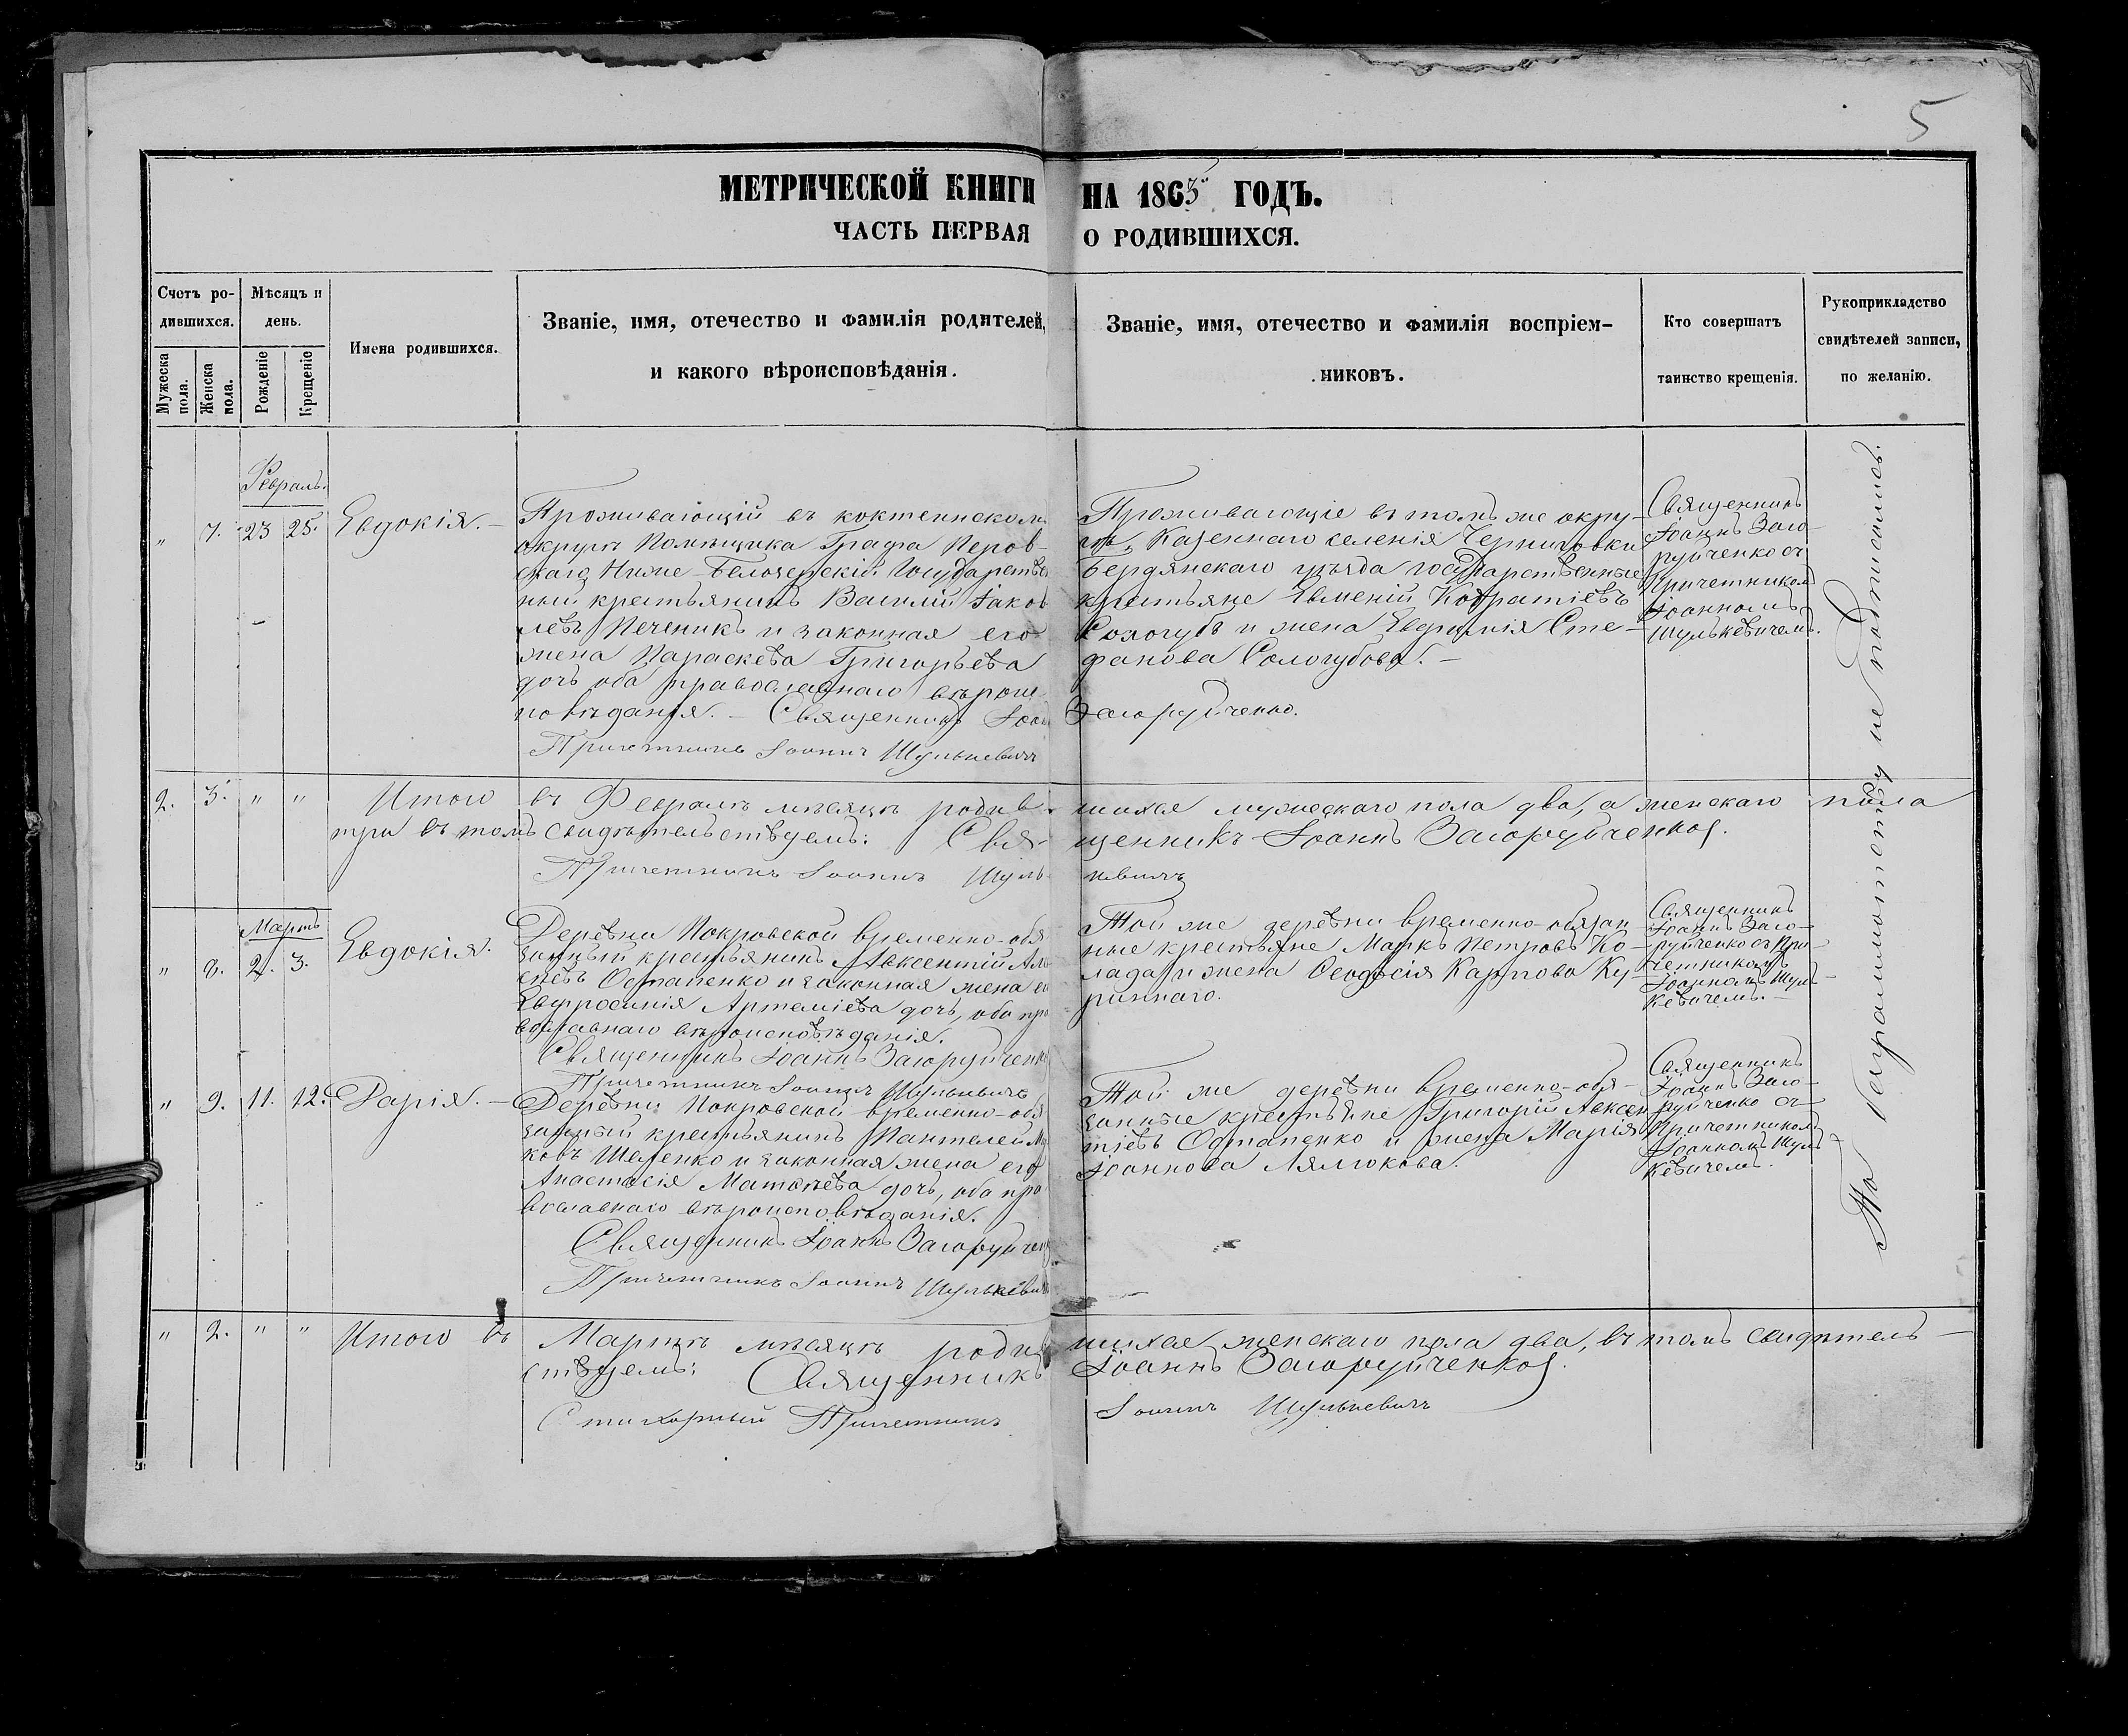 5
МЕТРИЧЕСКОЙ КНИГИ НА 1863й ГОДЪ.
ЧАСТЬ ПЕРВАЯ О РОДИВШИХСЯ.
Счетъ ро-
дившихся.
Мужеска пола.
Женска пола.
Мѣсяцъ и
день.
Рожденіе
Крещеніе
Имена родившихся.
Званіе, имя, отечество и фамилія родителей,
и какого вѣроисповѣданія.
Званіе, имя, отечество и фамилія воспріем-
никовъ.
Кто совершатъ
таинство крещенія.
Рукоприкладство
свидѣтелей записи,
по желанію.
Февраль.
" 7. 23 25. Евдокія.
Проживающій въ коктенском
округѣ Помѣщика Графа Перов-
скаго Ниже-Белозерскій Государствен
ный крестьянинъ Василій Іаков
левъ Печеникъ и законная его
жена Параскева Григорьева
дочь оба православнаго вѣроис
повѣданія. – Священникъ Іоан
Причетникъ Іоаннъ Шулькевичъ
Проживающіе въ томъ же окру-
гѣ, Казеннаго селенія Черниговки
Бердянскаго уѣзда государственные
крестьяне Евменій Кодратіевъ
Сологубъ и жена Евфимія Сте-
фанова Сологубова. –
Загоруйченко.
Священникъ
Іоаннъ Заго-
руйченко съ
Причетникомъ
Іоанномъ
Шулькевичемъ.
2. 3. " " Итого въ Февралѣ мѣсяцѣ родив-
шихся мужескаго пола два, а женскаго пола
три въ томъ свидѣтельствуемъ: Свя-
щенникъ Іоаннъ Загоруйченко
Причетникъ Іоаннъ Шуль-
кевичъ
Мартъ
" 8. 2. 3. Евдокія.
Деревни Покровской временно-обя
занный крестьянинъ Авксентій Але
ксѣевъ Остапенко и законная жена ег
Евфросинія Артеміева дочь, оба пра
вославнаго вѣроисповѣданія.
Священникъ Іоаннъ Загоруйченк
Причетникъ Іоаннъ Шулькевичъ
Той же деревни временно-обязан
ные крестьяне Маркъ Петровъ Ко-
лада и жена Ѳеодосія Карпова Ку-
риннаго.
Священникъ
Іоаннъ Заго-
руйченко съ При
четникомъ
Іоанномъ Шуль-
кевичемъ. –
" 9. 11. 12. Дарія. –
Деревни Покровской временно-обя
занный крестьянинъ Пантелей
ковъ и законная жена его
Анастасія Матѳеева дочь, оба пра
вославнаго вѣроисповѣданія.
Священникъ Іоаннъ Загоруйчен
Причетникъ Іоаннъ Шулькеви
Той же деревни временно-обя-
занные крестьяне Григорій Авксен
тіевъ Остапенко и жена Марія
Іоаннова Лялюкова.
Священникъ
Іоаннъ Заго-
руйченко съ
Причетником
Іоанномъ Шуль
кевичемъ.
По неграмотству не подписались.
" 2. " " Итого въ Мартѣ мѣсяцѣ родив
шихся женскаго пола два, въ томъ свидѣтель-
ствуемъ: Священникъ Іоаннъ Загоруйченко
Стихарный Причетникъ Іоаннъ Шулькевичъ